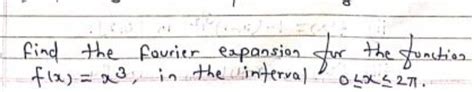 find the fourier expansion for the function
f(x) = x³, in the interval 0≤x≤2π.